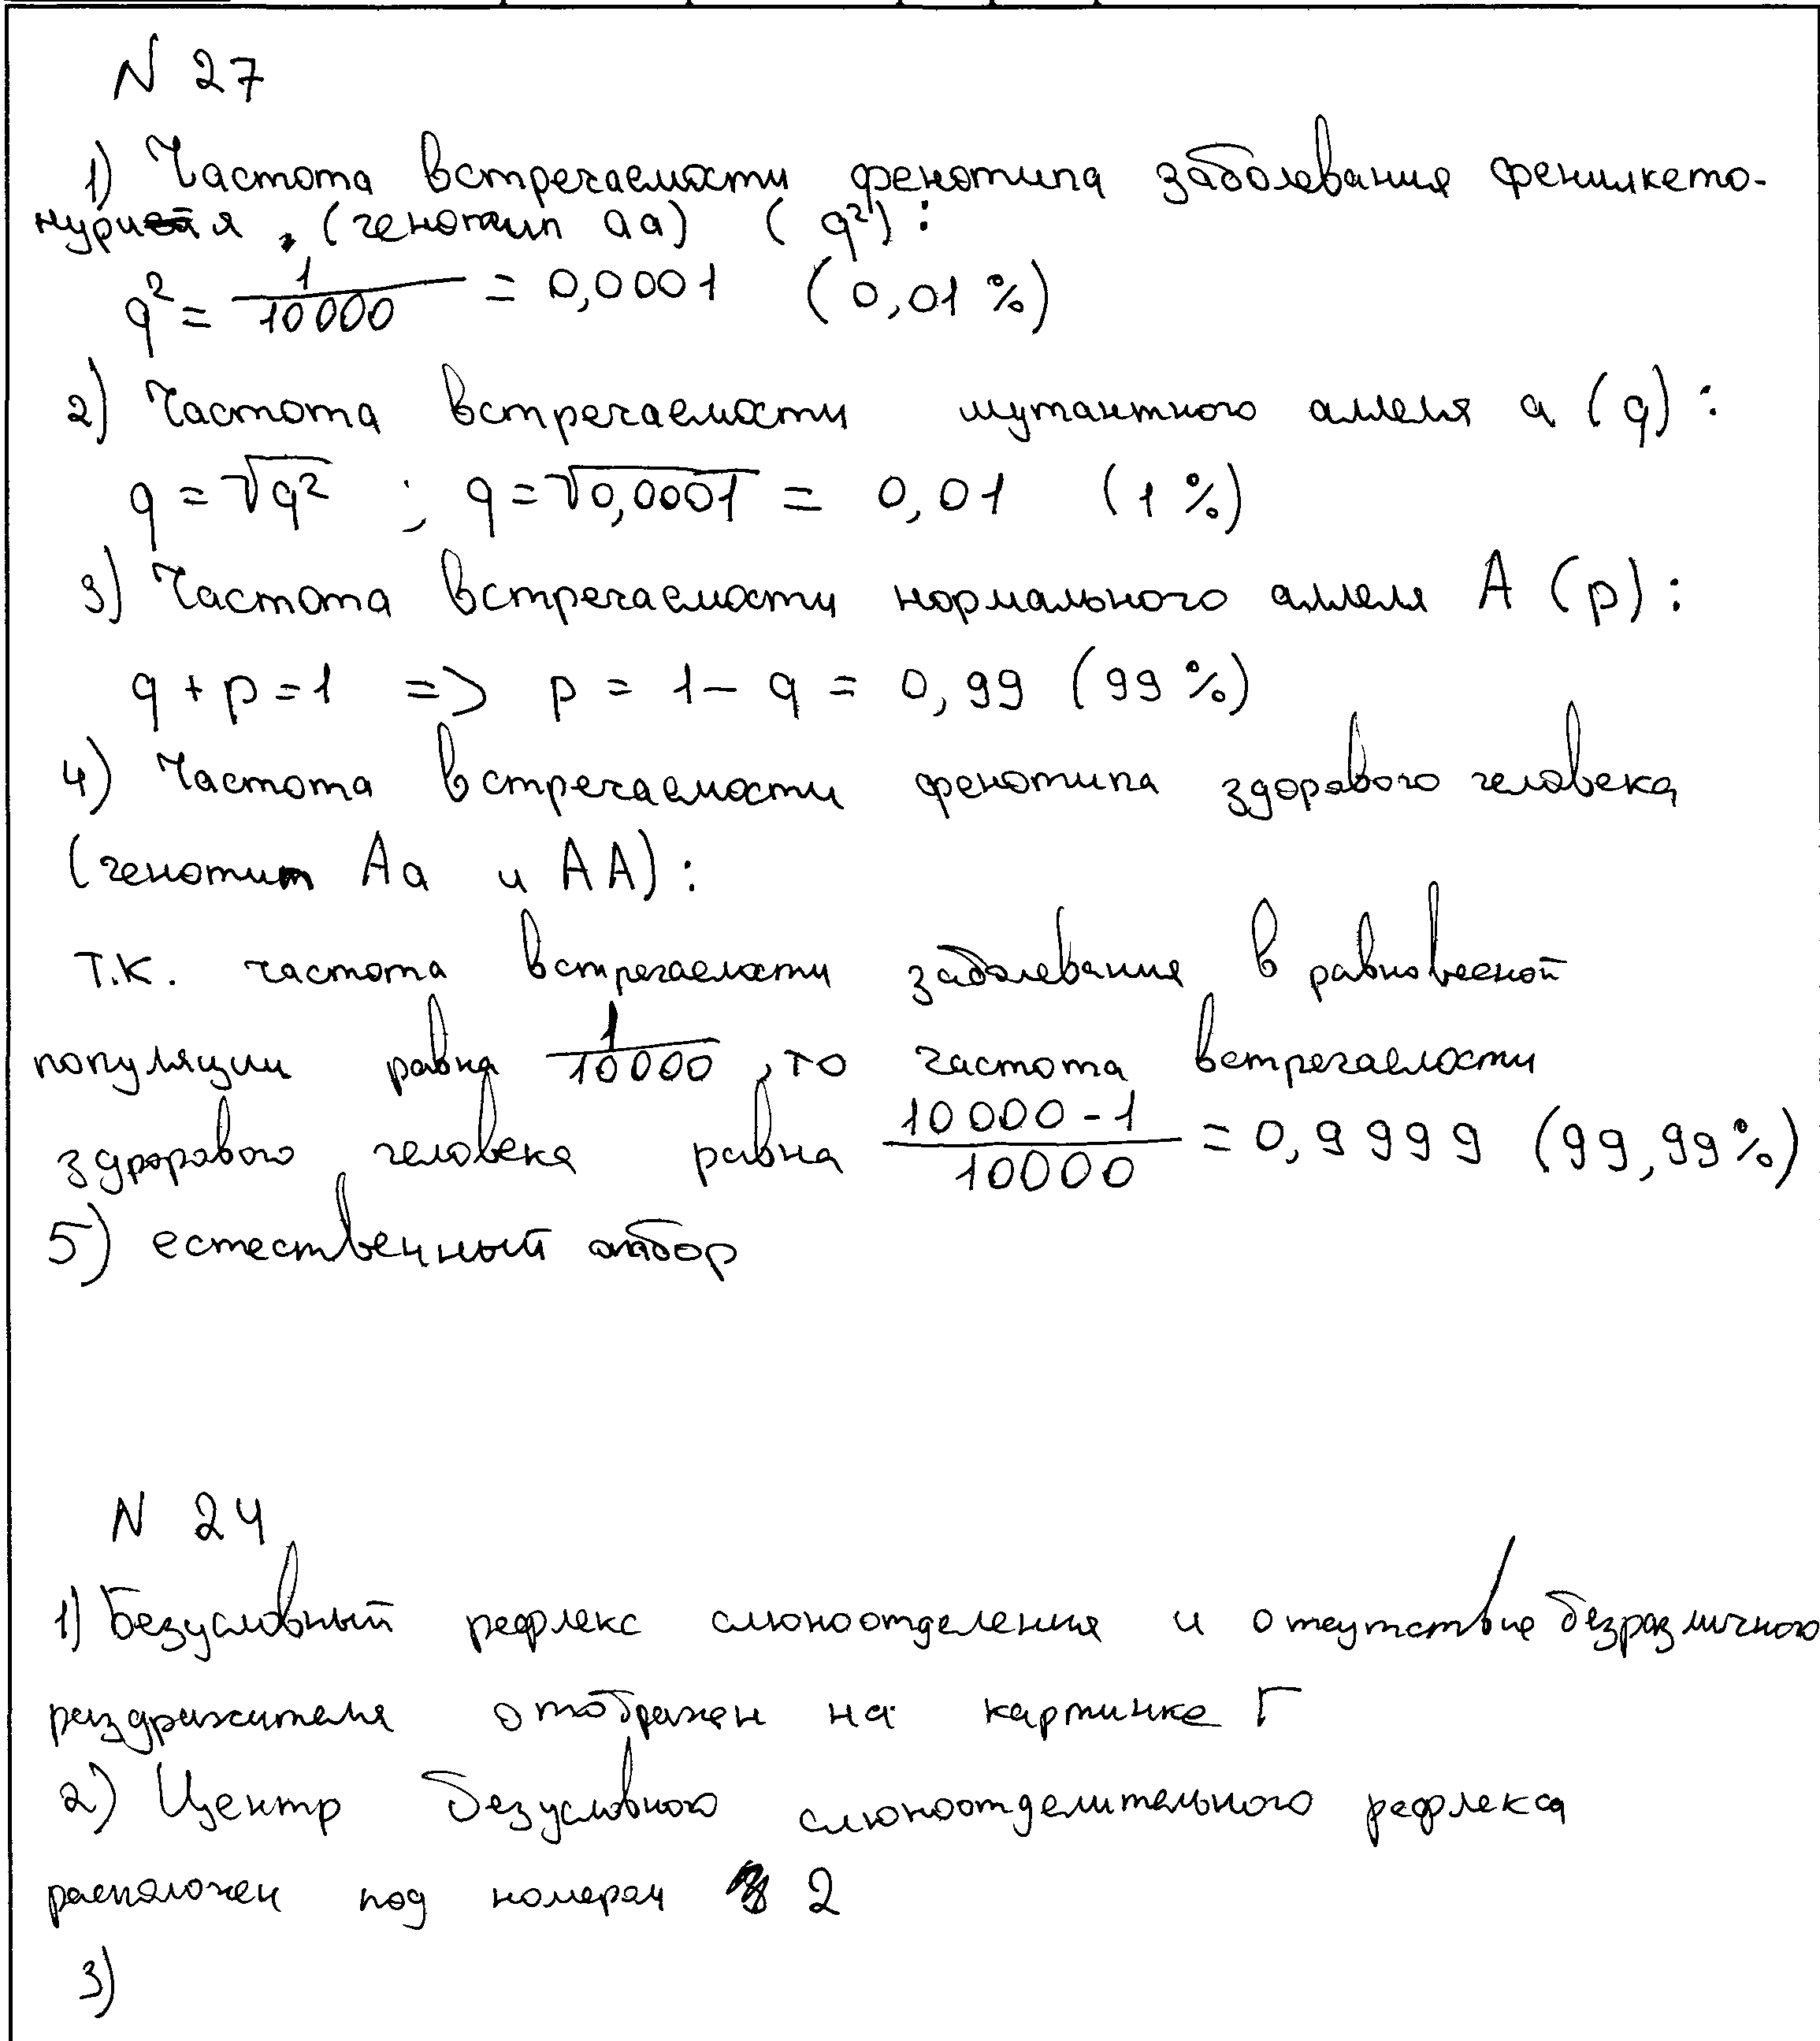 N 27
1) Частота встречаемости фенотипа заболевания фенилкето-
нурия, (генотип aa) (q²):
q² = 1/10000 = 0,0001 (0,01 %)
2) Частота встречаемости мутантного аллеля a (q):
q = √q² ; q = √0,0001 = 0,01 (1 %)
3) Частота встречаемости нормального аллеля A (p):
q + p = 1 => p = 1 - q = 0,99 (99 %)
4) Частота встречаемости фенотипа здорового человека
(генотип Aa и AA):
Т.К. частота встречаемости заболевания в равновесной
популяции равна 1/10000, то частота встречаемости
здорового человека равна (10000 - 1)/10000 = 0,9999 (99,99%)
5) естественный отбор
N 24
1) Безусловный рефлекс слюноотделения и отсутствие безразличного
раздражителя отображен на картинке Г
2) Центр безусловного слюноотделительного рефлекса
расположен под номером 2
3)